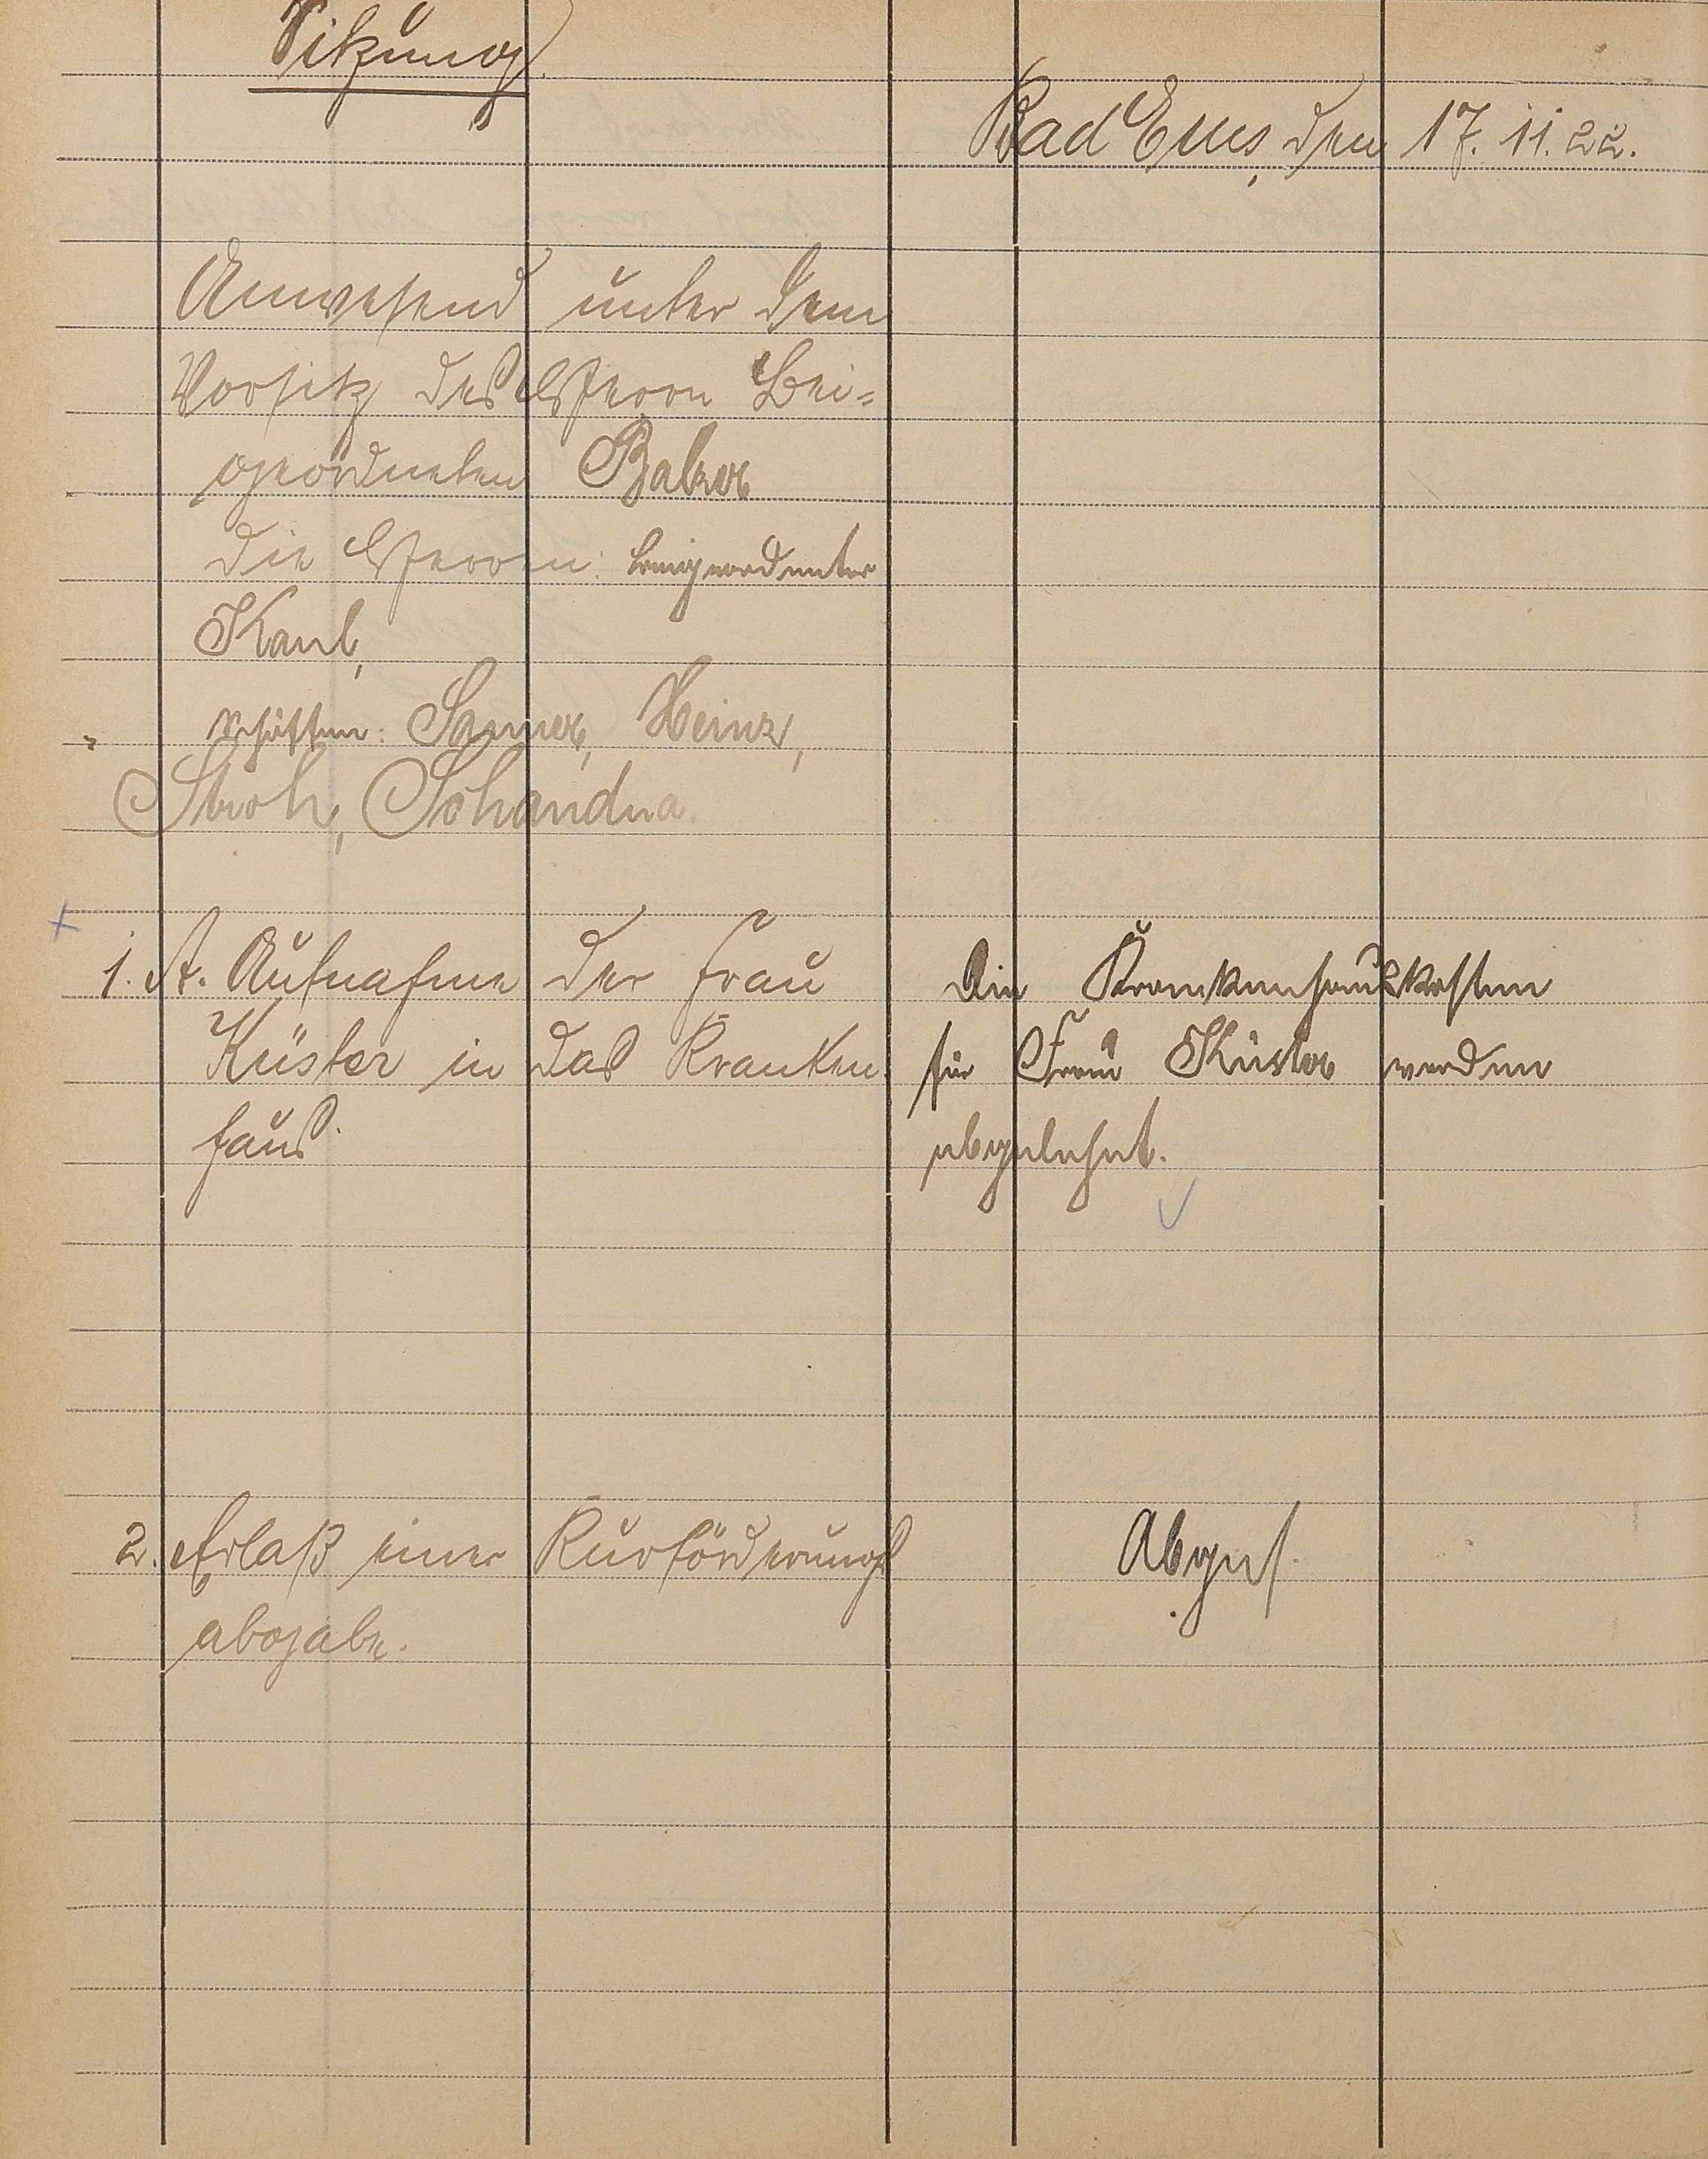 Sitzung.
Bad Ems, den 17. 11. 22.
Anwesend unter dem
Vorsitz des Herrn Bei=
geordneten Balzer
die Herren: Beigeordneter
Kaul,
Schöffen: Sanner, Heinz,
Stroh, Schandua.
1. A. Aufnahme der Frau
Küster in das Kranken
haus.
Die Krankenhauskosten
für Frau Küster werden
abgelehnt.
2. Erlaß einer Kurförderungs
abgabe.
Abges.